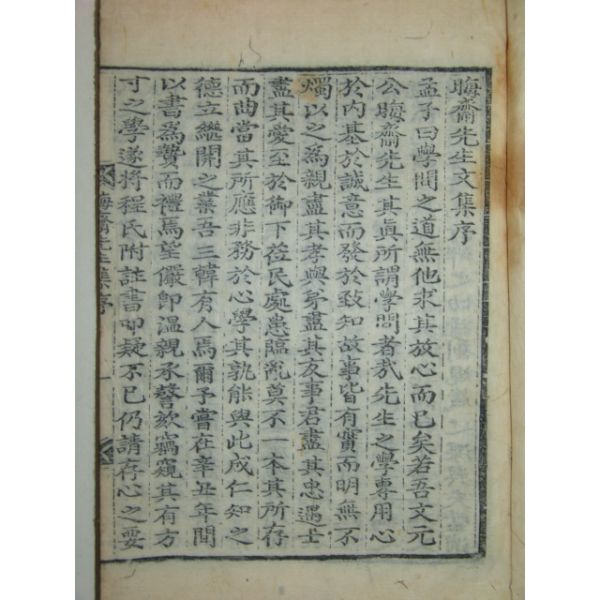 晦齋先生文集序
孟子曰學問之道無他求其放心而已矣若吾文元
公晦齋先生其眞所謂學問者哉先生之學專用心
於內基於誠意而發於致知故事皆有實而明無不
燭以之爲親盡其孝與身盡其友事君盡其忠遇士
盡其愛至於御下莅民處患臨亂莫不一本其所存
而曲當其所應非務於心學其孰能與此成仁知之
德立繼開之業吾三韓有人焉爾予嘗在辛丑年間
以書爲贄而禮焉望儼卽溫親承謦欬竊窺其有方
寸之學遂將程氏附註書叩疑不已仍請存心之要
晦齋先生集序
一